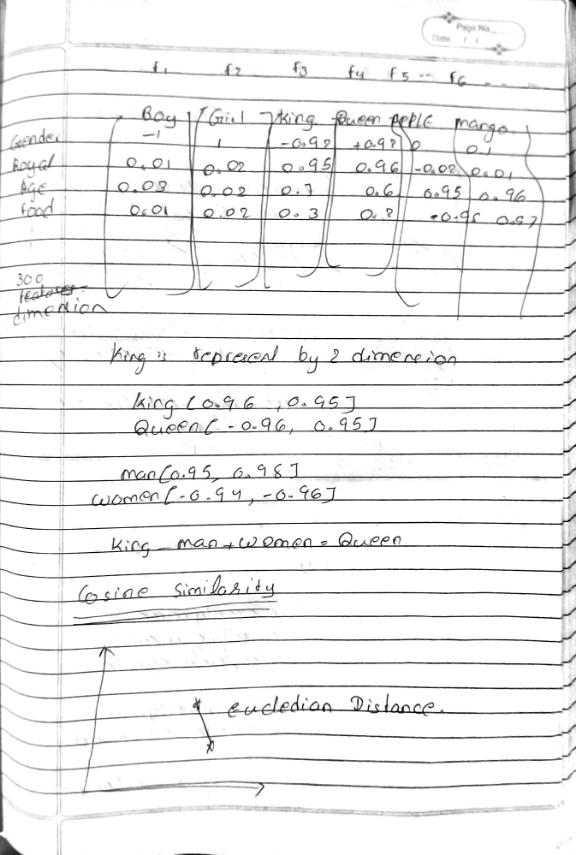 Page No.
Date / /
f1 f2 f3 f4 f5 -- f6
Boy Girl King Queen APPLE mango
Gender -1 1 -0.92 +0.92 0 0.1
Royal 0.01 0.02 0.95 0.96 -0.02 0.01
Age 0.03 0.02 0.7 0.6 0.95 0.96
Food 0.01 0.02 0.3 0.2 -0.95 0.97
300
features
dimention
King is represent by 2 dimension
King [0.96 , 0.95]
Queen [-0.96, 0.95]
man [0.95, 0.98]
women [-0.94, -0.96]
King - man + women = Queen
Cosine Similarity
eucledian Distance.